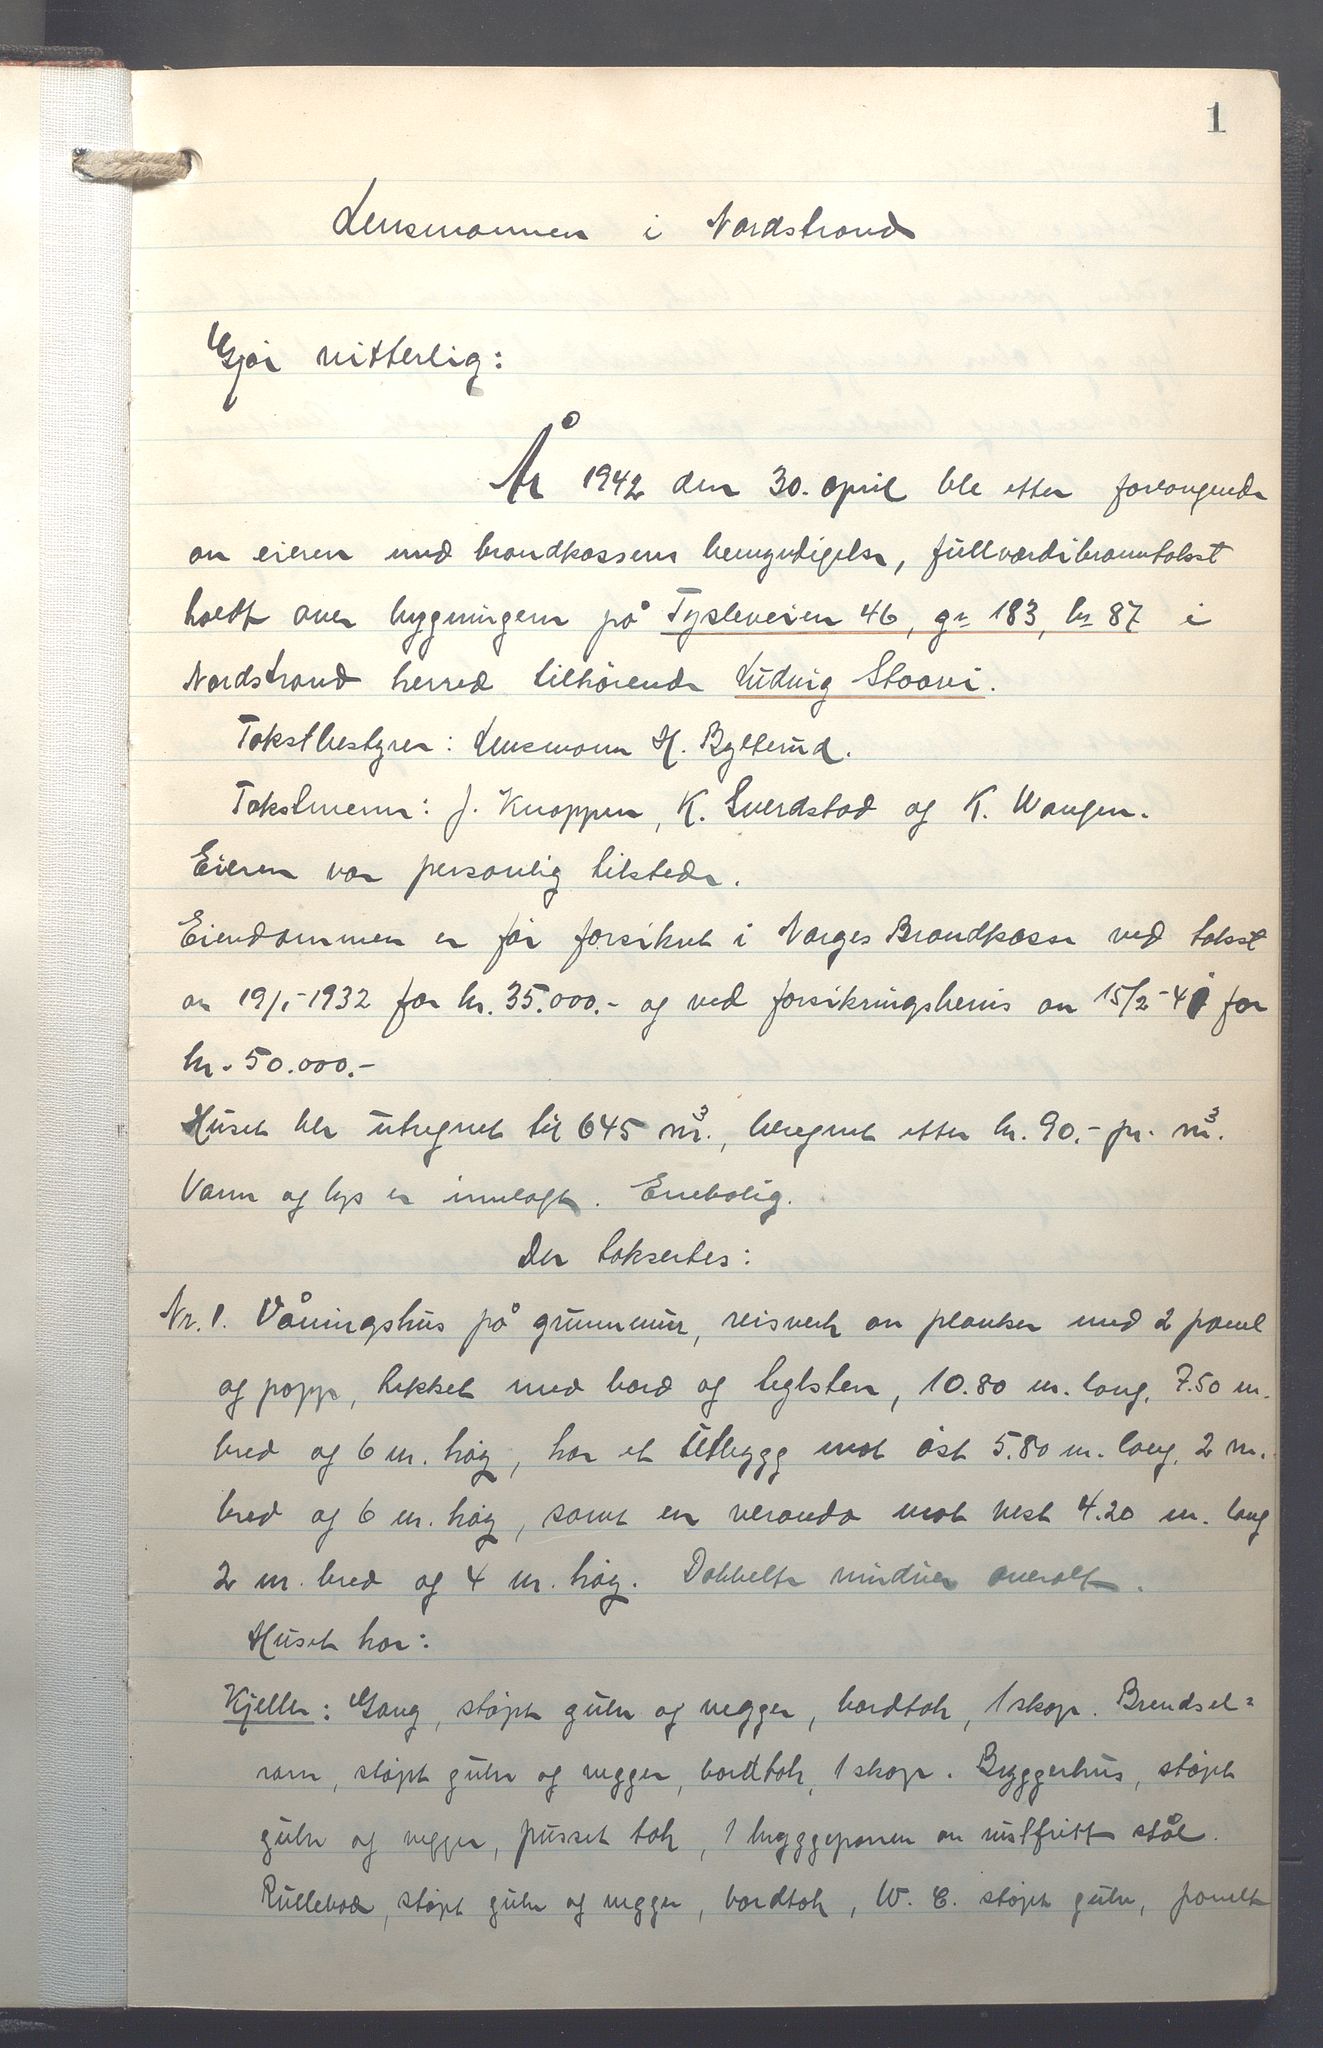 1
Lensmannen i Nordstrand
Gjør vitterlig:
År 1942 den 30. april ble etter forlangende
av eieren med brandkassens bemyndigelse, fullverdibranntakst
holdt over bygningen på Tysleveien 46, gn 183, bn 87 i
Nordstrand herred tilhørende Ludvig Staavi.
Takstbestyrer: Lensmann H. Bylterud.
Takstmenn: J. Knappen, K. Sverdstad og K. Wangen.
Eieren var personlig tilstede.
Eiendommen er før forsikret i Norges Brandkasse ved takst
av 19/1-1932 for kr. 35.000.- og ved forsikringsbevis av 15/2-41 for
kr. 50.000.-
Huset ble utregnet til 645 m³., beregnet etter kr. 90.- pr. m³.
Vann og lys er innlagt. Enebolig.
Der taksertes:
Nr. 1. Våningshus på grunnmur, reisverk av planker med 2 panel
og papp, tekket med bord og teglsten, 10.80 m. lang, 7.50 m.
bred og 6 m. høg, har et utbygg mot øst 5.80 m. lang, 2 m.
bred og 6 m. høg, samt en veranda mot vest 4.20 m. lang
2 m. bred og 4 m. høg. Dobbelte vinduer overalt.
Huset har:
Kjeller: Gang, støpt gulv og vegger, bordtak, 1 skap. Brendsel=
rom, støpt gulv og vegger, bordtak, 1 skap. Bryggerhus, støpt
gulv og vegger, pusset tak, 1 bryggepanne av rustfritt stål.
Rullebod, støpt gulv og vegger, bordtak, W. C. støpt gulv, panelte